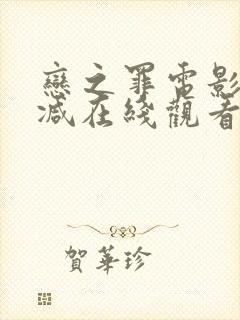 戀之罪電影
減在綫觀看
賀華珍